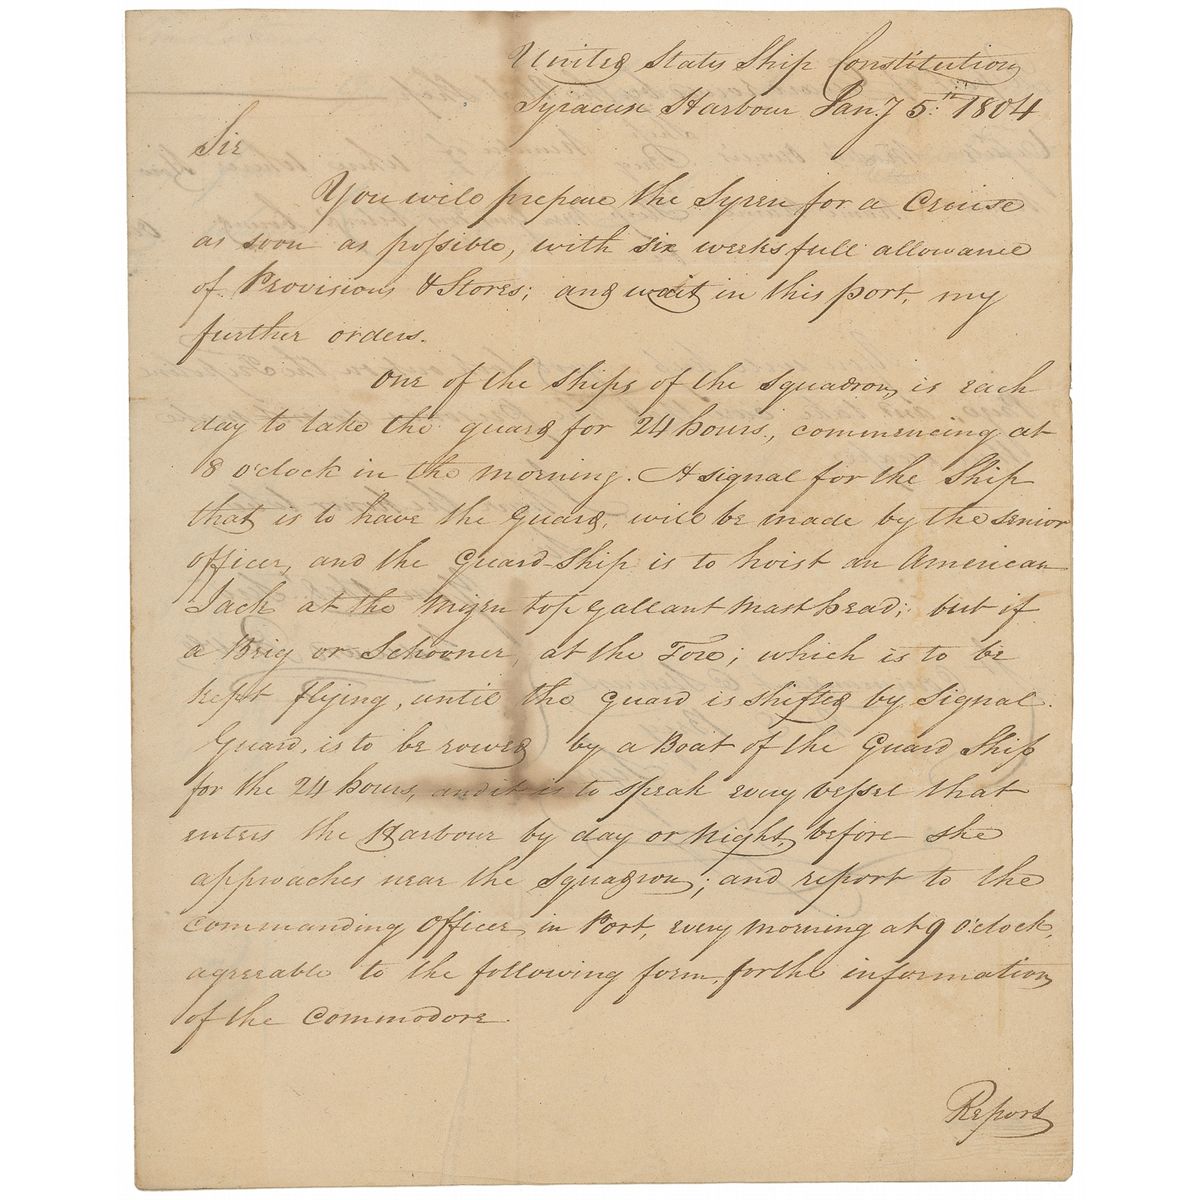 United States Ship Constitution
Syracuse Harbour Jany 5th 1804
Sir
You will prepare the Syren for a Cruise
as soon as possible, with six weeks full allowance
of Provisions & Stores; and wait in this port, my
further orders.
One of the ships of the squadron, is each
day to take the guard for 24 hours, commencing at
8 o'clock in the morning. A signal for the Ship
that is to have the Guard, will be made by the senior
officer, and the Guard-Ship is to hoist an American
Jack at the Mizen top Gallant Mast head; but if
a Brig or Schooner, at the Fore; which is to be
kept flying, until the Guard is shifted by Signal.
Guard, is to be rowed by a Boat of the Guard Ship
for the 24 hours, and it is to speak every vessel that
enters the Harbour by day or Night, before she
approaches near the squadron; and report to the
Commanding Officer, in Port, every morning at 9 o'clock,
agreeable to the following form, for the information
of the Commodore.
Report